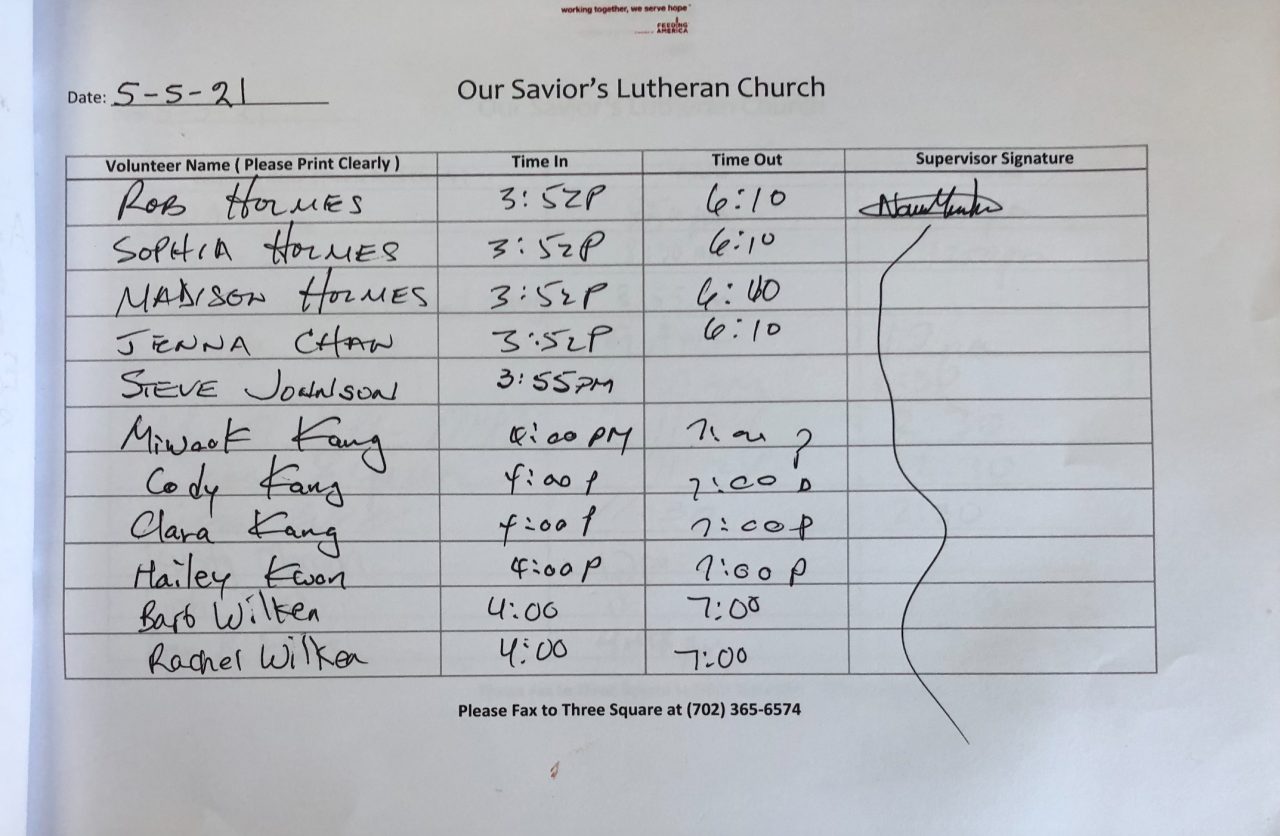 working together, we serve hope
FEEDING
AMERICA
Date: 5-5-21
Our Savior's Lutheran Church
Volunteer Name ( Please Print Clearly ) Time In Time Out Supervisor Signature
ROB HOLMES 3:52P 6:10
SOPHIA HOLMES 3:52P 6:10
MADISON HOLMES 3:52P 6:10
JENNA CHAN 3:52P 6:10
STEVE JOHNSON 3:55PM
Miwook Kang 4:00 PM
Cody Kang 4:00 P 7:00 P
Clara Kang 4:00 P 7:00 P
Hailey Kwon 4:00 P 7:00 P
Barb Wilken 4:00 7:00
Rachel Wilken 4:00 7:00
Please Fax to Three Square at (702) 365-6574